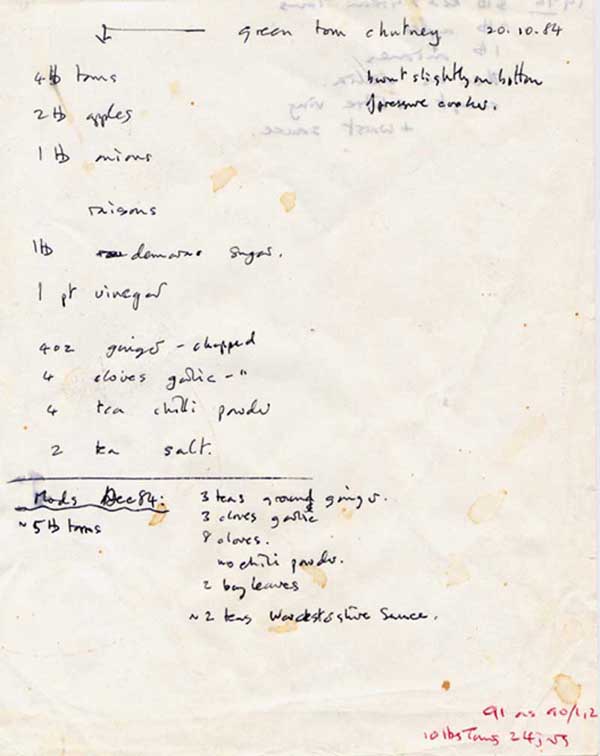 green tom chutney 20.10.84
burnt slightly on bottom
of pressure cooker.
4lb toms
2 lb apples
1 lb onions
raisons
1lb demarar sugar.
1 pt vinegar
4oz ginger - chopped
4 cloves garlic - "
4 tea chilli powder
2 tea salt.
Mods Dec 84:
~ 5 lb toms
3 teas ground ginger.
3 cloves garlic
8 cloves.
no chili powder.
2 bay leaves
~ 2 teas Worcestershire Sauce.
91 as 90/1,2
10 lbs Toms 24 jars